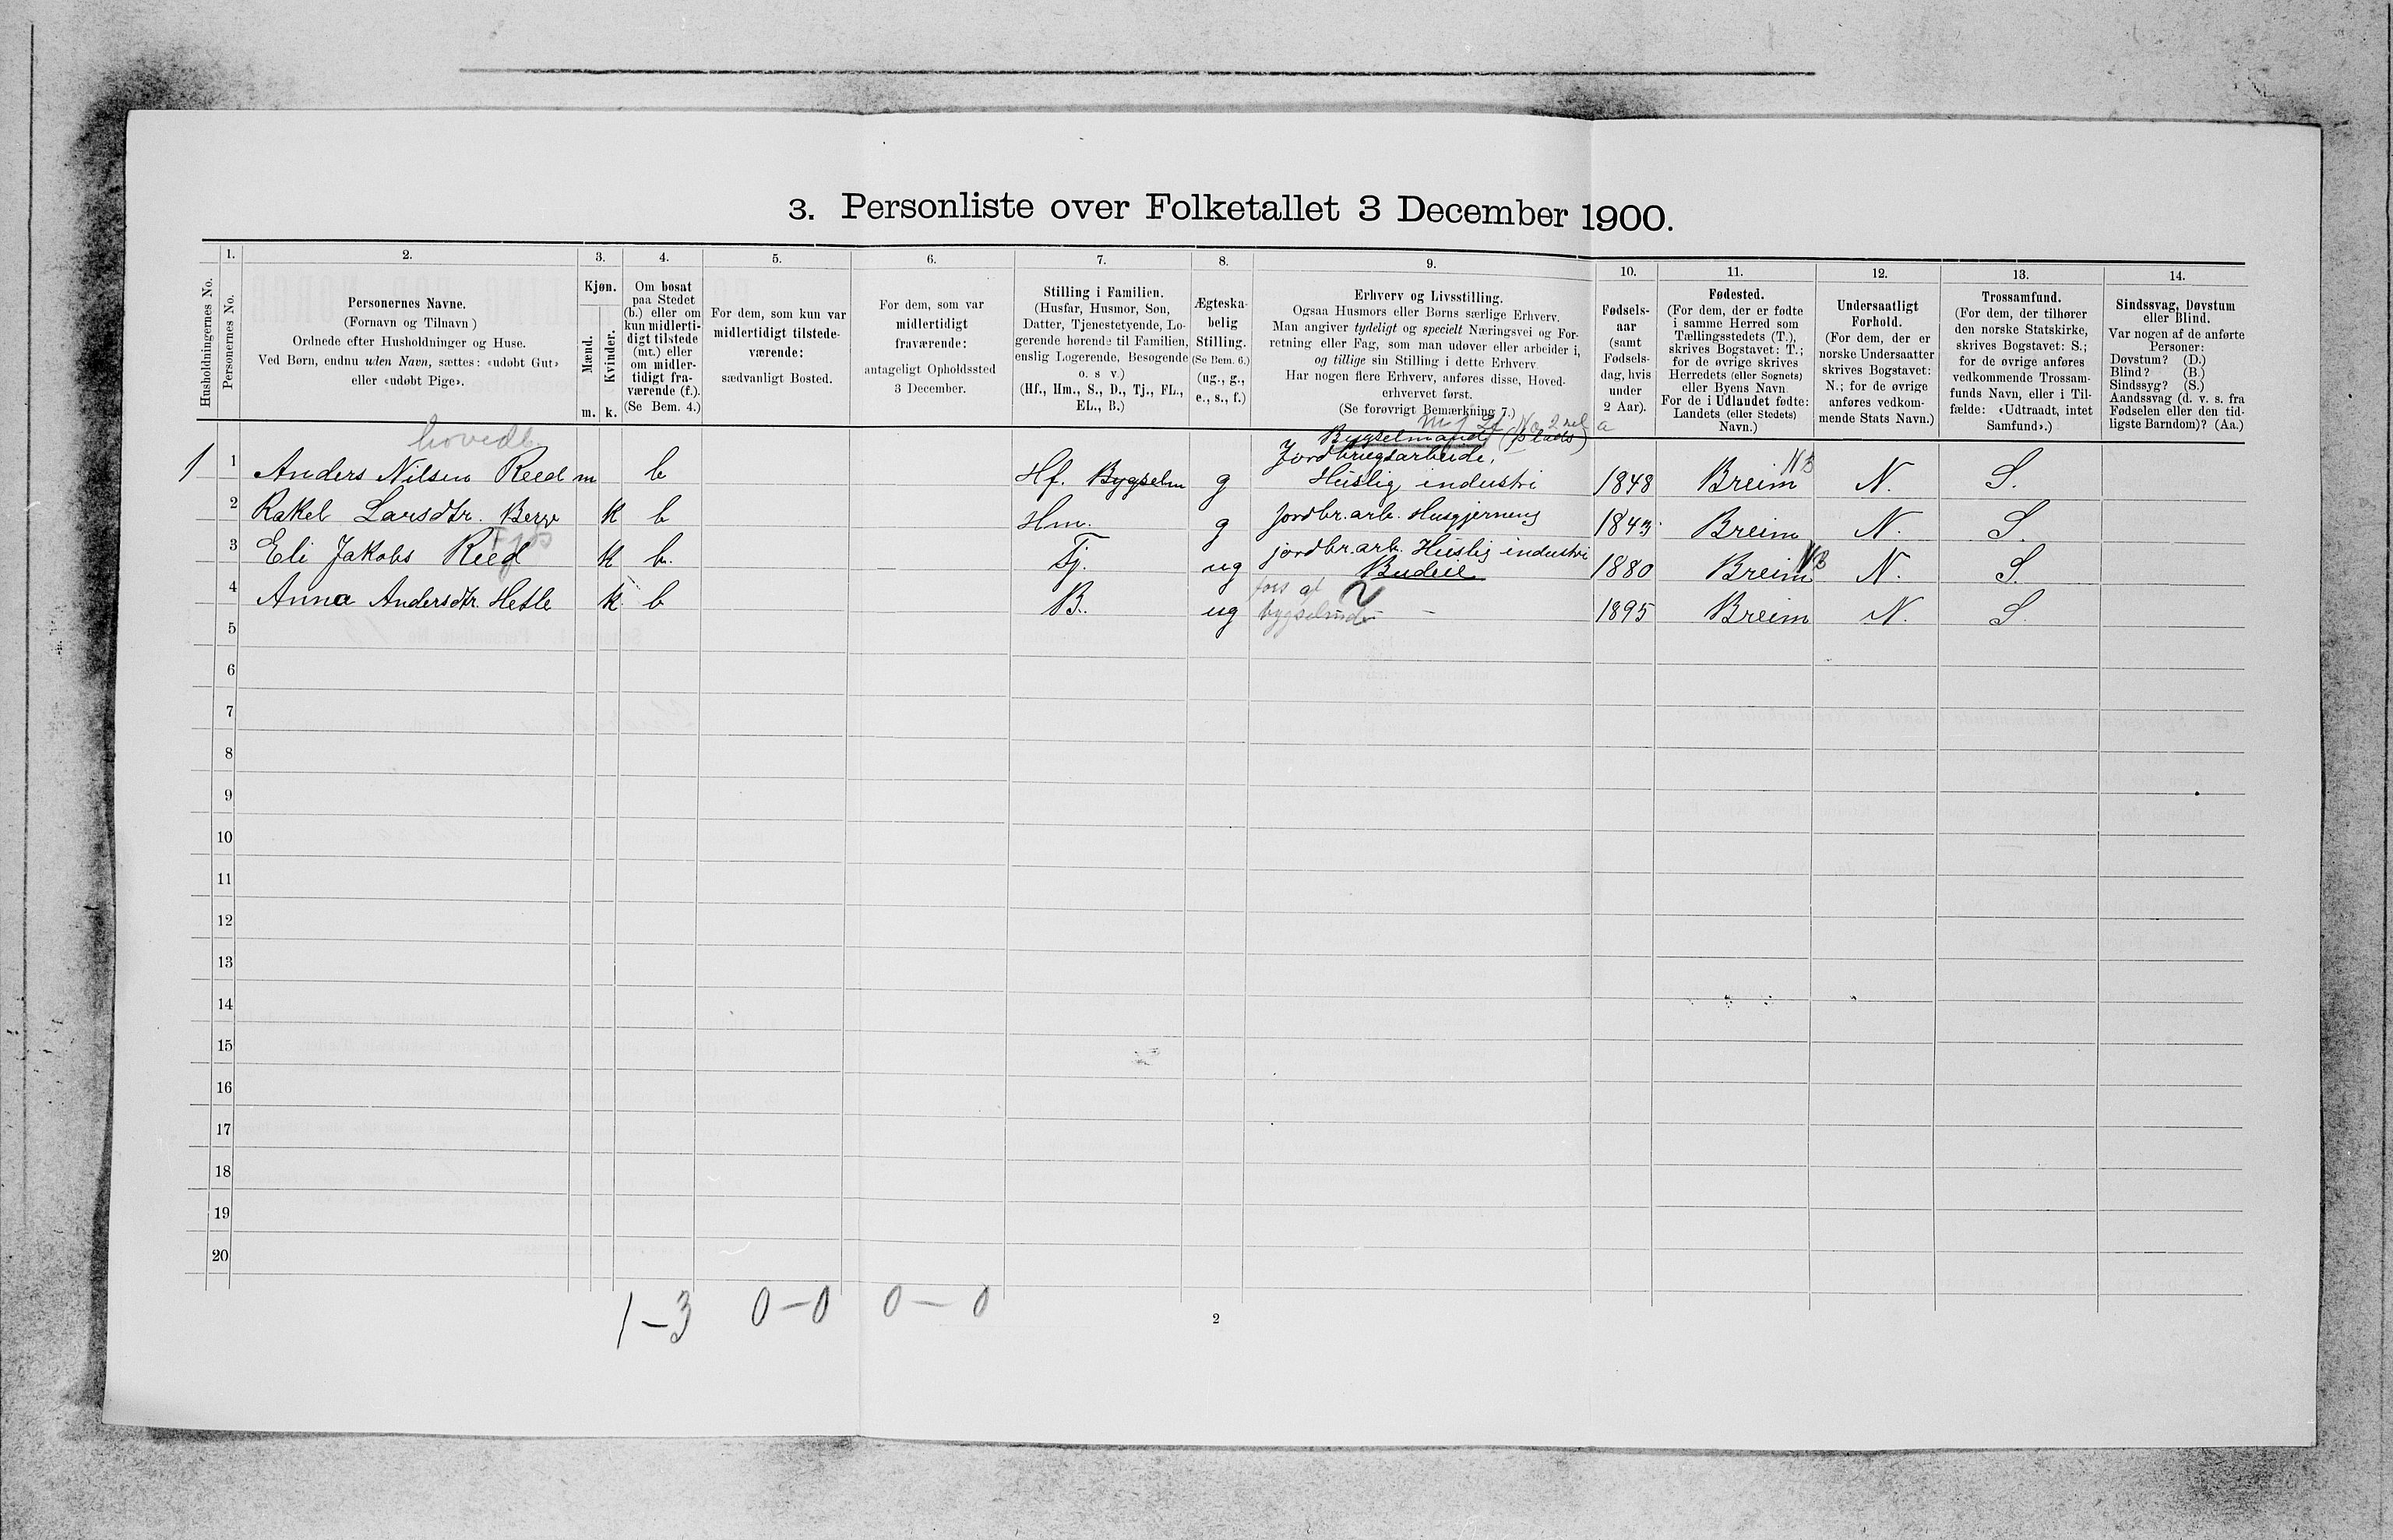 3. Personliste over Folketallet 3 December 1900.
1. 2. 3. 4. 5. 6. 7. 8. 9. 10. 11. 12. 13. 14.
Husholdningernes No.
Personernes No.
Personernes Navne.
(Fornavn og Tilnavn)
Ordnede efter Husholdninger og Huse.
Ved Børn, endnu uden Navn, sættes: «udøbt Gut»
eller «udøbt Pige».
Kjøn.
Mænd.
Kvinder.
m. k.
Om bosat
paa Stedet
(b.) eller om
kun midlerti-
digt tilstede
(mt.) eller
om midler-
tidigt fra-
værende (f.).
(Se Bem. 4.)
For dem, som kun var
midlertidigt tilstede-
værende:
sædvanligt Bosted.
For dem, som var
midlertidigt
fraværende:
antageligt Opholdssted
3 December.
Stilling i Familien.
(Husfar, Husmor, Søn,
Datter, Tjenestetyende, Lo-
gerende hørende til Familien,
enslig Logerende, Besøgende
o. s v.)
(Hf., Hm., S., D., Tj., FL.,
EL., B.)
Ægteska-
belig
Stilling.
(Se Bem. 6.)
(ug., g.,
e., s., f.)
Erhverv og Livsstilling.
Ogsaa Husmors eller Børns særlige Erhverv.
Man angiver tydeligt og specielt Næringsvei og For-
retning eller Fag, som man udøver eller arbeider i,
og tillige sin Stilling i dette Erhverv
Har nogen flere Erhverv, anføres disse, Hoved-
erhvervet først.
(Se forøvrigt Bemærkning 7.)
Fødsels-
aar
(samt
Fødsels-
dag, hvis
under
2 Aar).
Fødested.
(For dem, der er fødte
i samme Herred som
Tællingsstedets (T.),
skrives Bogstavet: T.;
for de øvrige skrives
Herredets (eller Sognets)
eller Byens Navn
For de i Udlandet fødte:
Landets (eller Stedets)
Navn.)
Undersaatligt
Forhold.
(For dem, der er
norske Undersaatter
skrives Bogstavet:
N.; for de øvrige
anføres vedkom-
mende Stats Navn.)
Trossamfund.
(For dem, der tilhører
den norske Statskirke,
skrives Bogstavet: S.;
for de øvrige anføres
vedkommende Trossam-
funds Navn, eller i Til-
fælde: «Udtraadt, intet
Samfund».)
Sindssvag, Døvstum
eller Blind.
Var nogen af de anførte
Personer:
Døvstum? (D.)
Blind? (B.)
Sindssyg? (S.)
Aandssvag (d. v. s. fra
Fødselen eller den tid-
ligste Barndom)? (Aa.)
hovedb.
Bygselmand (plads)
Jordbrugsarbeide,
1 1 Anders Nilsen Reed m b Hf. Bygselm g Huslig industri 1848 Breim N. S.
2 Rakel Larsdtr. Berge k b Hm. g jordbr. arb. Husgjerning 1843 Breim N. S.
3 Eli Jakobs Reed k b. Tj. ug jordbr. arb. Huslig industri 1880 Breim N. S.
Budeie
4 Anna Andersdtr. Hetle k. b B. ug fors af bygselmd 1895 Breim N. S.
5
6
7
8
9
10
11
12
13
14
15
16
17
18
19
20
1-3 0-0 0-0
2